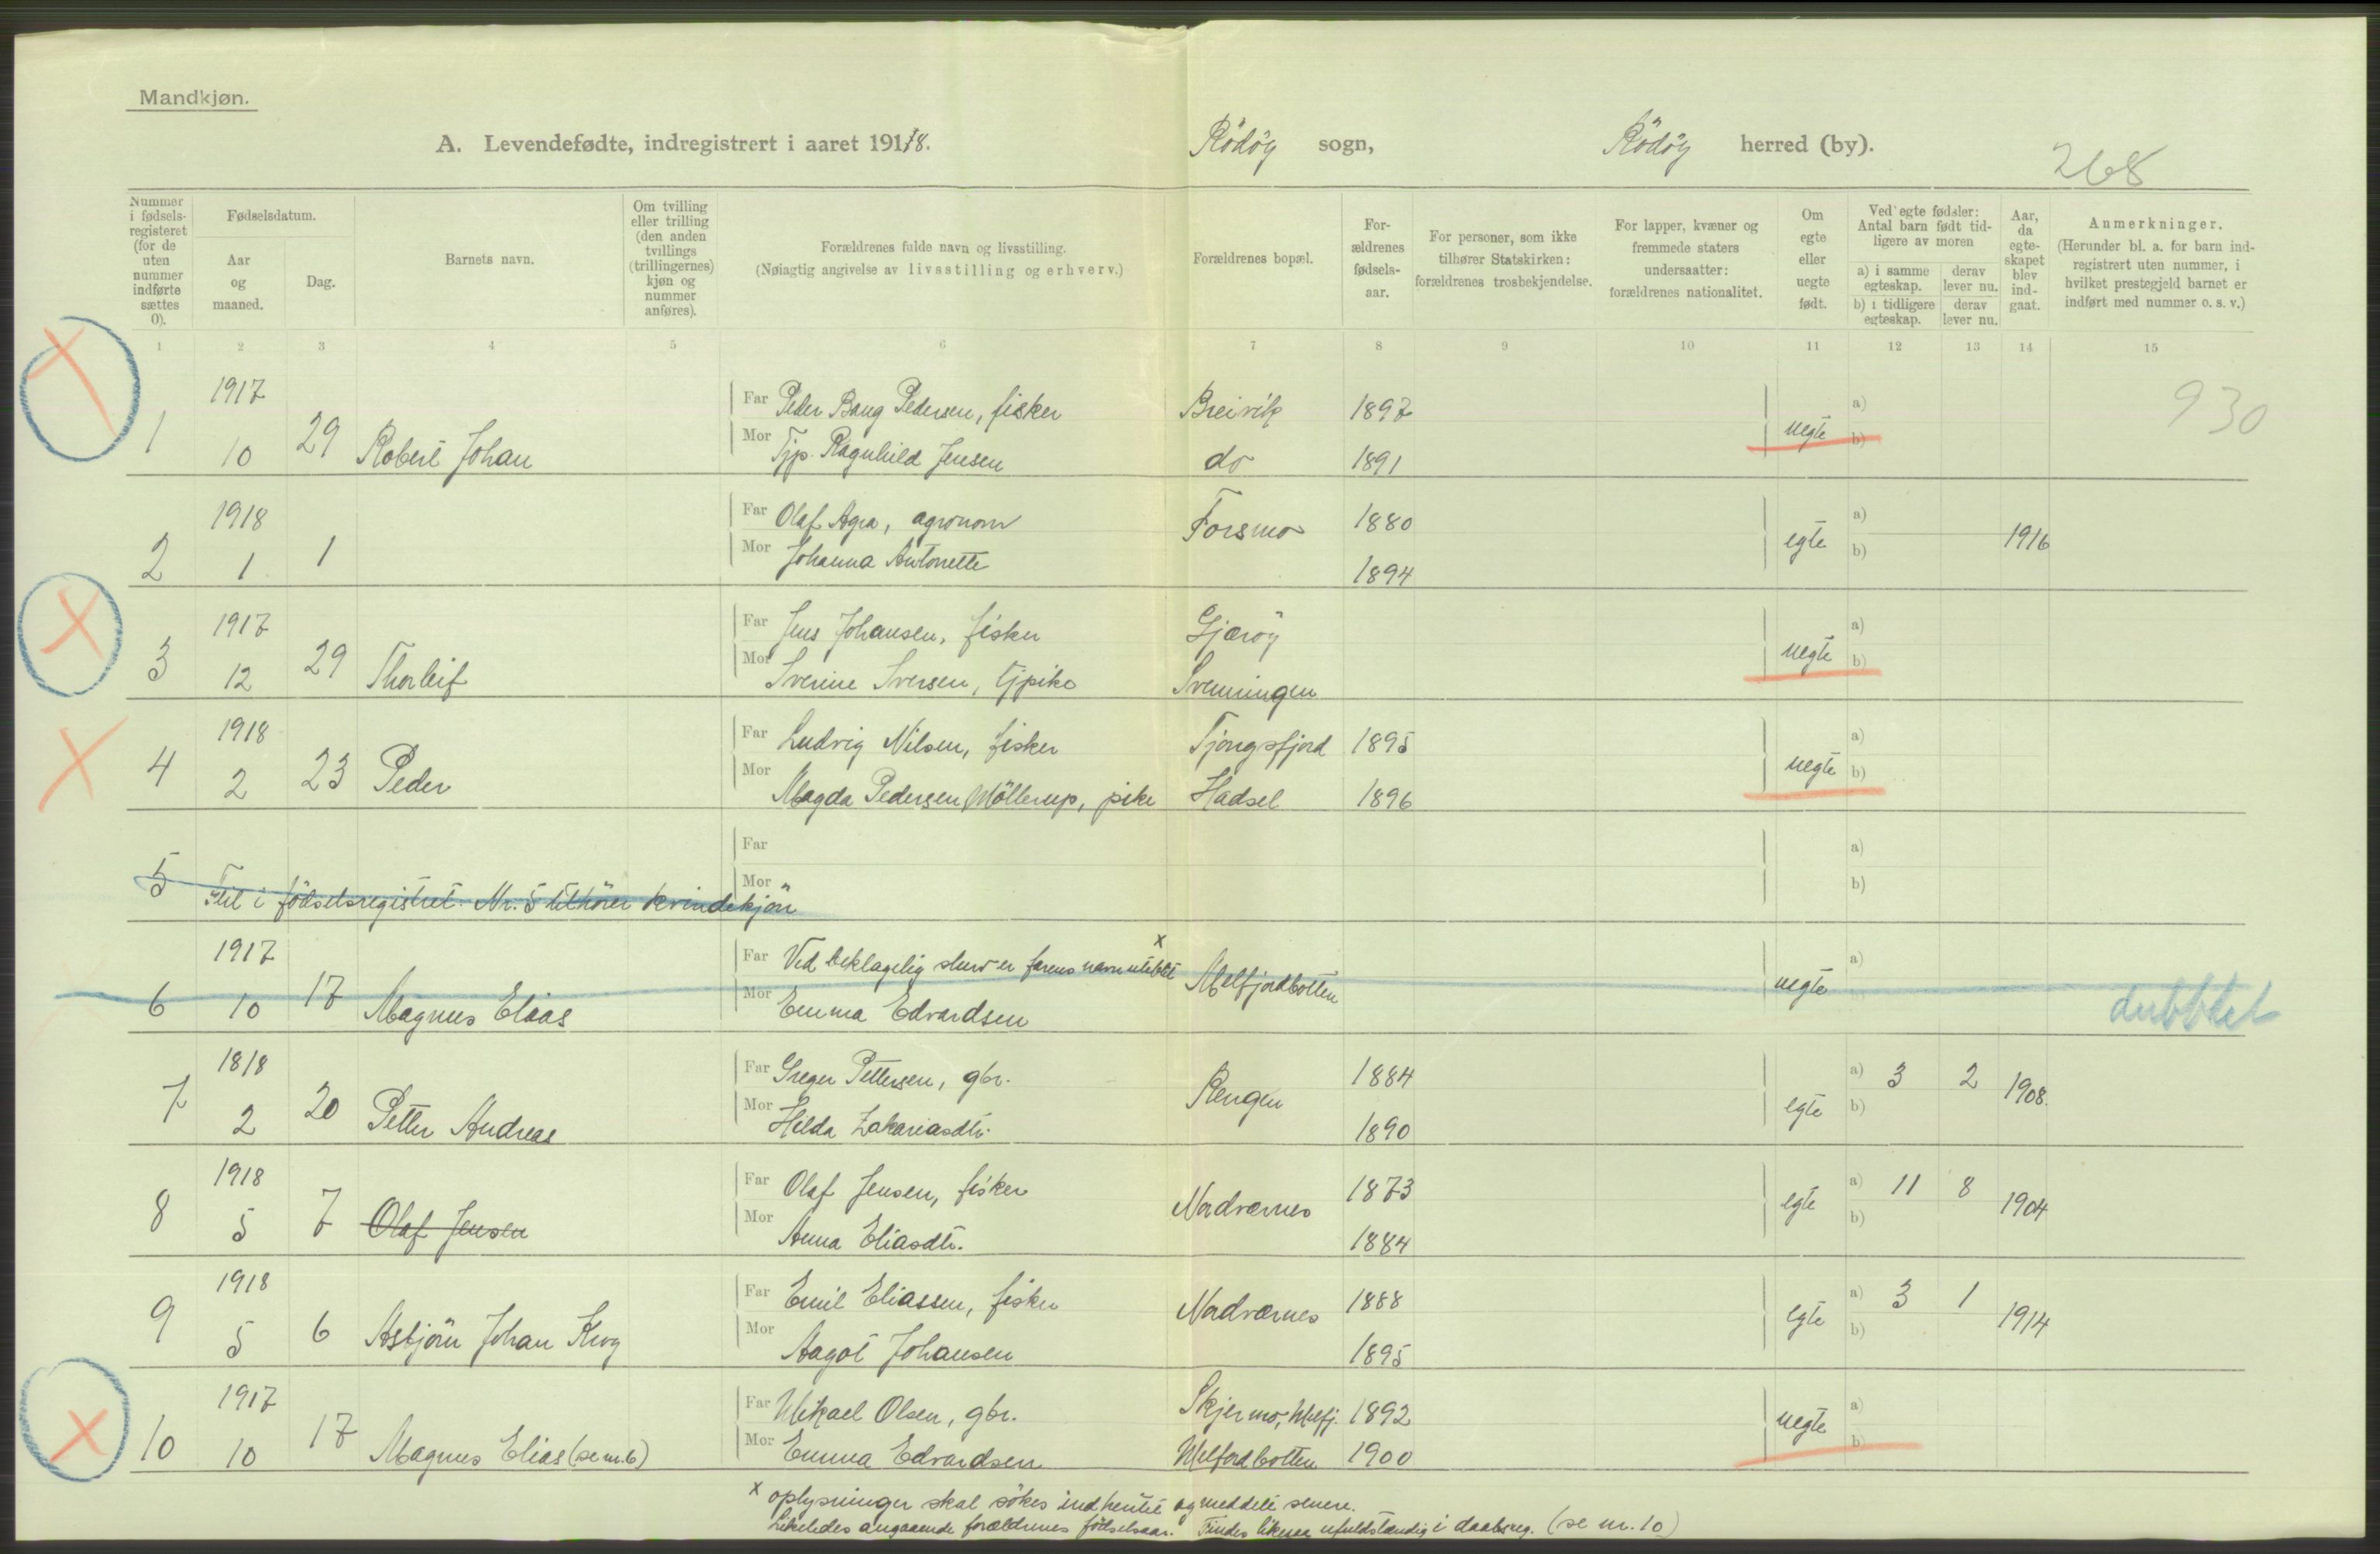 Mandkjøn.
A. Levendefødte, indregistrert i aaret 1918.
Rödöy sogn, Rödöy herred (by).
268
Nummer i fødselsregisteret (for de uten nummer indførte sættes 0).
Fødselsdatum.
Aar og maaned.
Dag.
Barnets navn.
Om tvilling eller trilling (den anden tvillings (trillingernes) kjøn og nummer anføres).
Forældrenes fulde navn og livsstilling.
(Nøiagtig angivelse av livsstilling og erhverv.)
Forældrenes bopæl.
Forældrenes fødselsaar.
For personer, som ikke tilhører Statskirken: forældrenes trosbekjendelse.
For lapper, kvæner og fremmede staters undersaatter: forældrenes nationalitet.
Om egte eller uegte født.
Ved egte fødsler: Antal barn født tidligere av moren
a) i samme egteskap. derav lever nu.
b) i tidligere egteskap. derav lever nu.
Aar, da egteskapet blev indgaat.
Anmerkninger.
(Herunder bl. a. for barn indregistrert uten nummer, i hvilket prestegjeld barnet er indført med nummer o. s. v.)
1 2 3 4 5 6 7 8 9 10 11 12 13 14 15
1917 Far Peder Bang Pedersen, fisker Breivik 1897 a) 930
1 10 29 Robert Johan Mor Tjp. Ragnhild Jensen do 1891 uegte b)
1918 Far Olaf Agra, agronom Forsmo 1880 a)
2 1 1 Mor Johanna Antonette 1894 egte b) 1916
1917 Far Jens Johansen, fisker Gjærøy a)
3 12 29 Thorleif Mor Iverine Iversen, tjpike Svenningen uegte b)
1918 Far Ludvig Nilsen, fisker Tjongsfjord 1895 a)
4 2 23 Peder Mor Magda Pedersen Möllerup, pike Hadsel 1896 uegte b)
Far a)
5 Feil i födselsregistret. Nr. 5 tilhører kvindekjön Mor b)
1917 Far Ved beklagelig slurv er farens navn uteblit x Melfjordbotten a)
6 10 17 Magnus Elias Mor Emma Edvardsen uegte dubblet
1818 Far Greger Pettersen, gbr. Rengen 1884 a) 3 2 1908.
7 2 20 Petter Andreas Mor Hilda Zakariasdtr. 1890 egte b)
1918 Far Olaf Jensen, fisker Nordværnes 1873 a) 11 8 1904
8 5 7 Olaf Jensen Mor Anna Eliasdtr. 1884 egte b)
1918 Far Emil Eliassen, fisker Nordværnes 1888 a) 3 1 1914
9 5 6 Asbjörn Johan Krog Mor Aagot Johansen 1895 egte b)
1917 Far Mikael Olsen, gbr. Skjermo, Melfj. 1892 a)
10 10 17 Magnus Elias (se nr. 6) Mor Emma Edvardsen Melfordbotten 1900 uegte b)
x oplysninger skal sökes indhentet og meddelt senere.
Likeledes angaaende forældrenes födselsaar. Findes likesaa ufuldstændig i daabsreg. (se nr. 10)